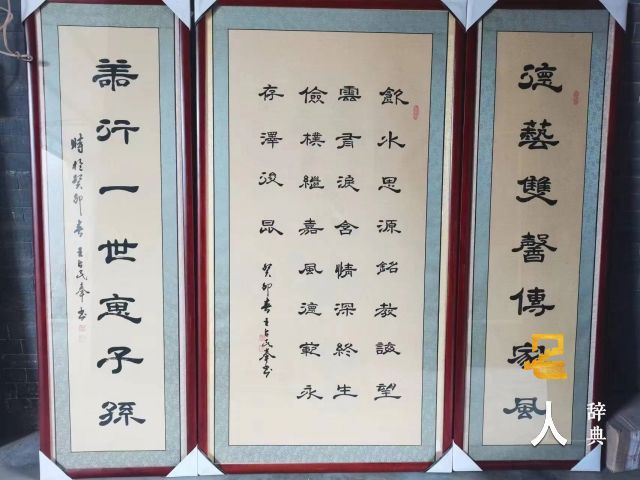 德藝雙馨傳家風
飲水思源銘教誨望
雲有淚含情深終生
儉樸繼嘉風德範永
存澤後昆
癸卯春王占民奉书
善行一世惠子孫
時值癸卯春王占民奉书
名人
辞典